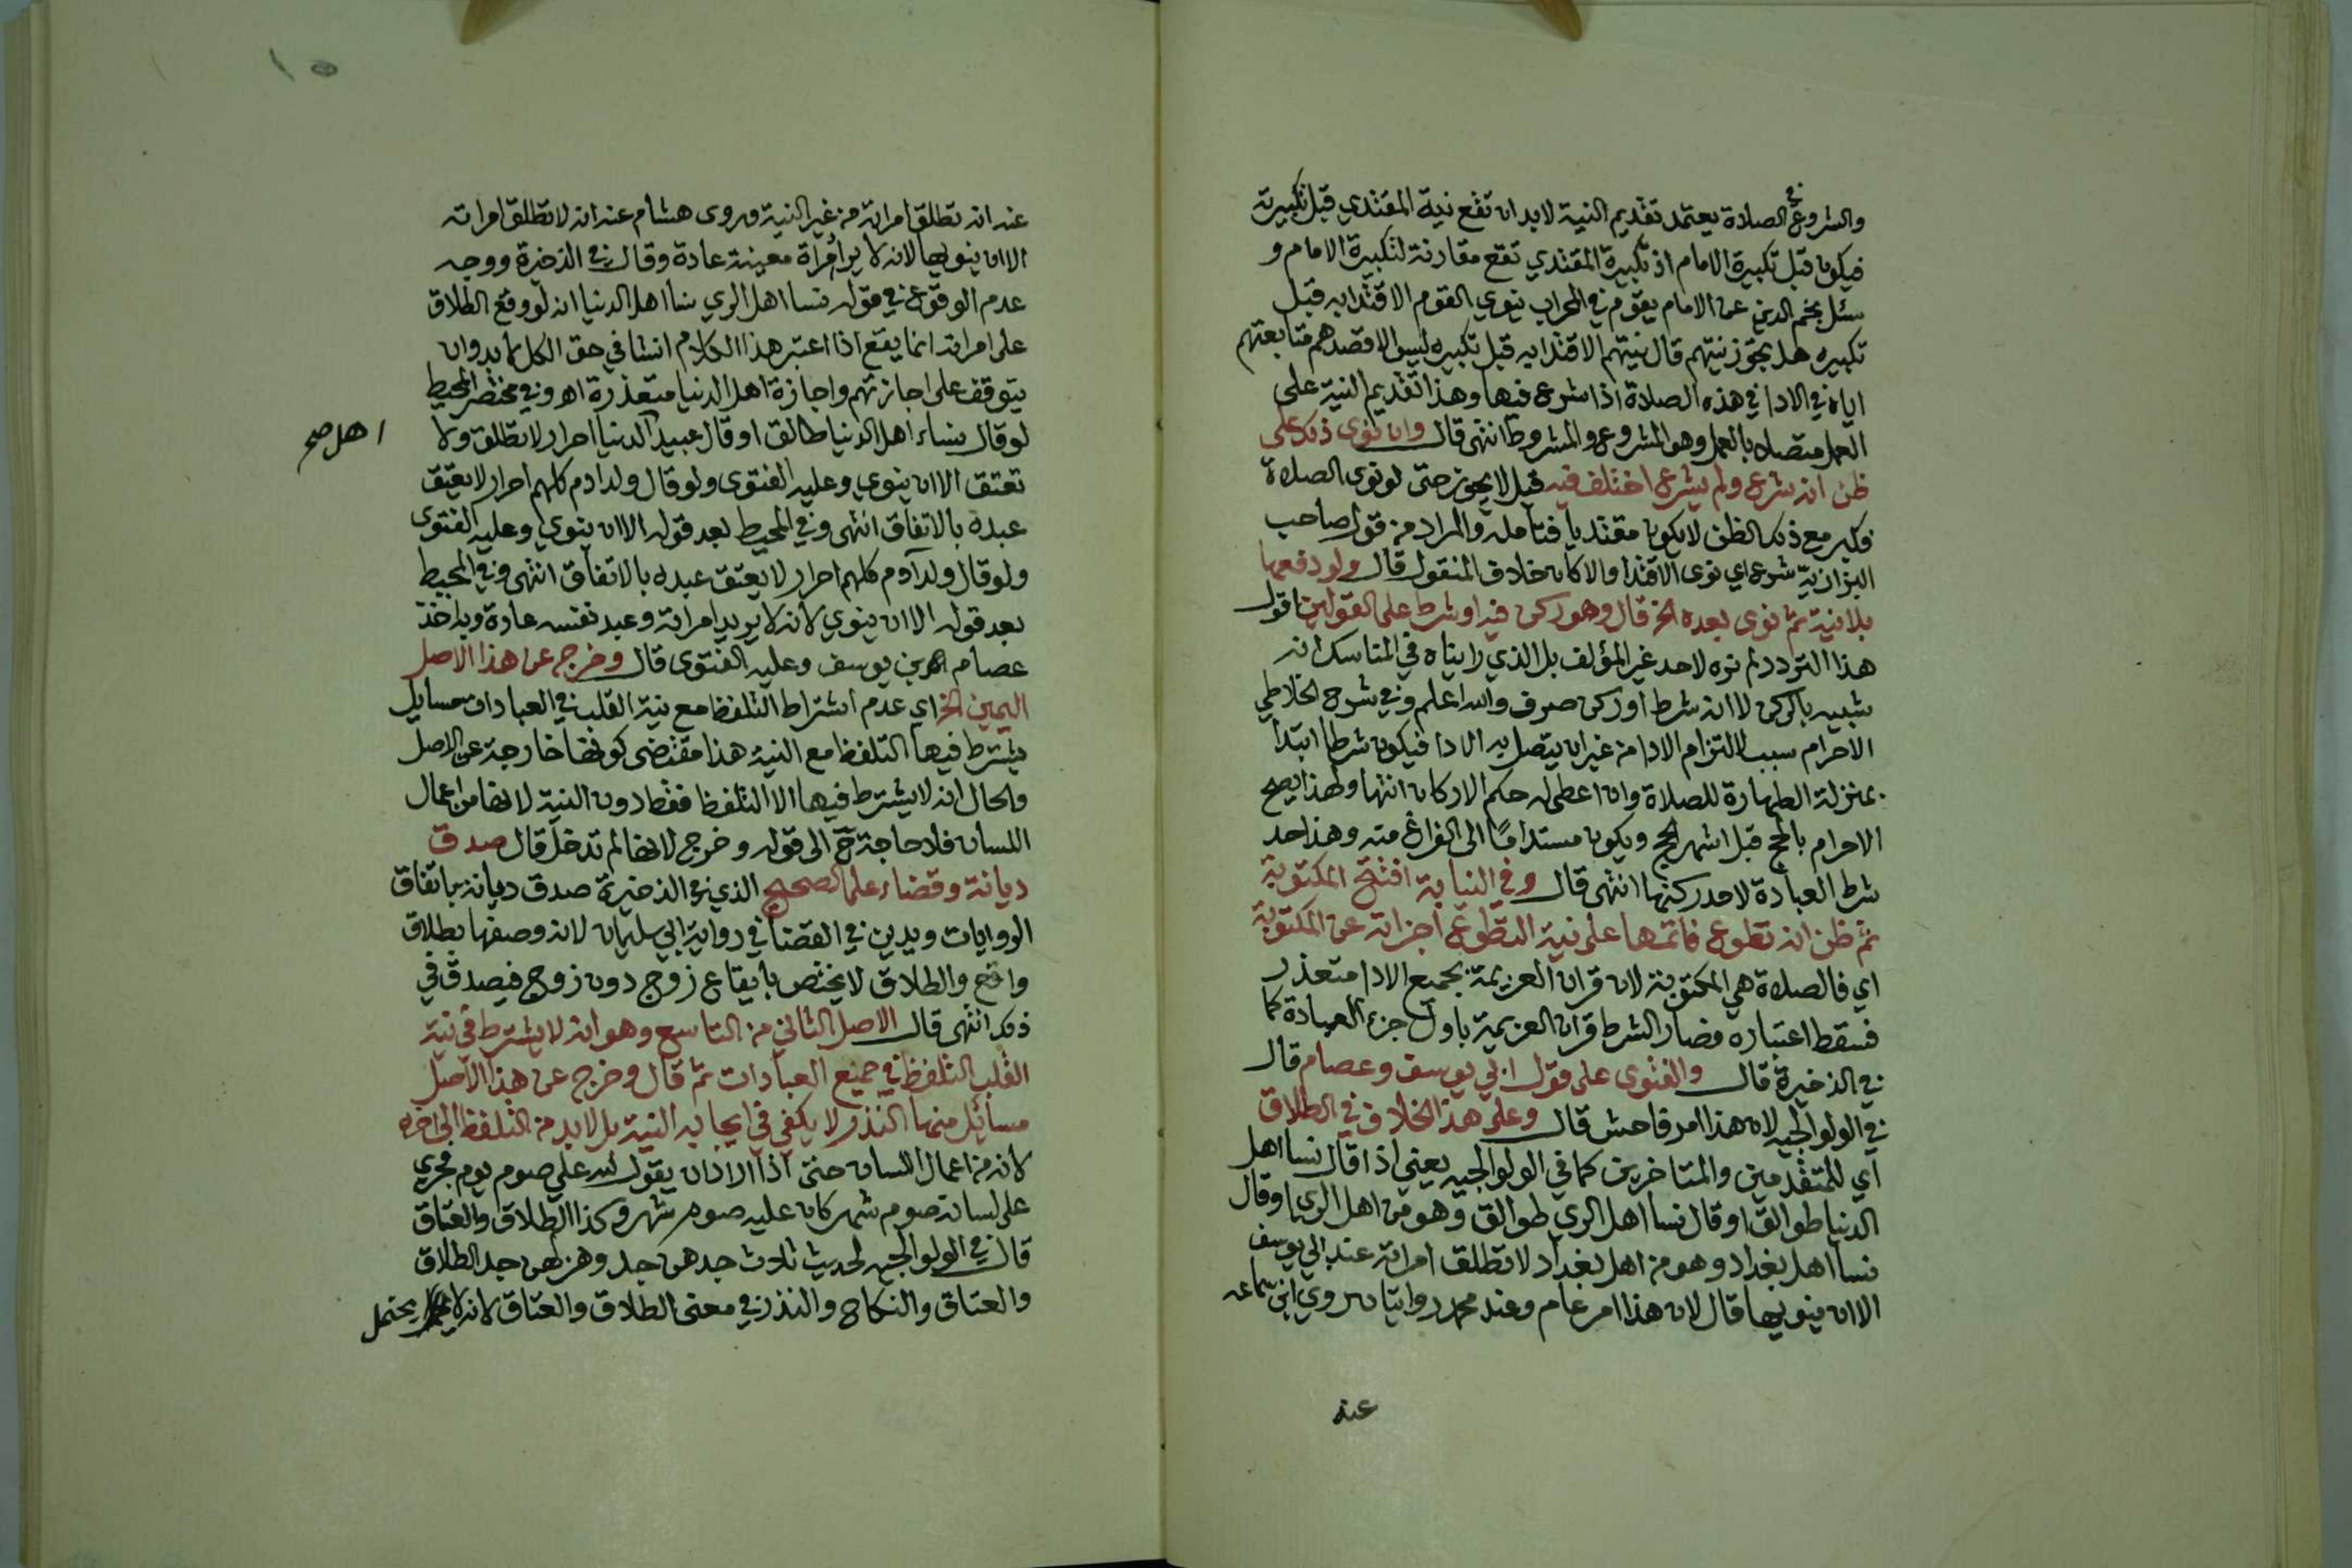 والشروع في الصلاة يعتمد تقديم النية لابد ان تقع نية المقتدي قبل تكبيرته
فيكون قبل تكبيرة الامام اذ تكبيرة المقتدي تقع مقارنة لتكبيرة الامام و
سئل نجم الدين عن الامام يقوم في المحراب ينوي القوم الاقتدا به قبل
تكبيره هل يجوز نيتهم قال نيتهم الاقتدا به قبل تكبيره ليس الا قصدهم متابعتهم
اياه في الادا في هذه الصلاة اذا شرع فيها وهذا تقديم النية على
العمل متصلا بالعمل وهو المشروع والمشروط انتهى قال وان نوى ذلك على
ظن انه شرع ولم يشرع اختلف فيه قيل لا يجوز حتى لو نوى الصلاة
فكبر مع ذلك الظن لا يكون مقتديا فتامله والمراد من قول صاحب
البزازية شرع اي نوى الاقتدا والا كان خلاف المنقول قال ولو دفعها
بلا نية ثم نوى بعده الخ قال وهو ركن فيه او شرط على القولين اقول
هذا التردد لم نره لاحد غير المؤلف بل الذي رايناه في المناسك انه
شبيه بالركن لا انه شرط او ركن صرف والله اعلم وفي شرح الخلاطي
الاحرام سبب لالتزام الادا من غير ان يتصل به الادا فيكون شرطا ابتدا
بمنزلة الطهارة للصلاة وان اعطى له حكم الاركان انتها ولهذا يصح
الاحرام بالحج قبل اشهر الحج ويكون مستداما الى الفراغ منه وهذا حد
شرط العبادة لا حد ركنها انتهى قال وفي النيابة افتتح المكتوبة
ثم ظن انه تطوع فاتمها على نية التطوع اجزاته عن المكتوبة
اي فالصلاة هي المكتوبة لان قران العزيمة بجميع الادا متعذر
فسقط اعتباره فصار الشرط قران العزيمة باول جزء العبادة كما
في الذخيرة قال والفتوى على قول ابي يوسف وعصام قال
في الولوالجيه لان هذا امر فاحش قال وعلى هذا الخلاف في الطلاق
اي للمتقدمين والمتاخرين كما في الولوالجيه يعني اذا قال نسا اهل
الدنيا طوالق او قال نسا اهل الري طوالق وهو من اهل الري او قال
نسا اهل بغداد وهو من اهل بغداد لا تطلق امراته عند ابي يوسف
الا ان ينويها قال لان هذا امر عام وعند محمد روايتان روي ابن سماعه
عنه
١٥
عنه انه تطلق امراته من غير النية وروى هشام عنه انه لا تطلق امراته
الا ان ينويها لانه لا يراد امراة معينة عادة وقال في الذخرة ووجه
عدم الوقوع في قوله نسا اهل الري نسا اهل الدنيا انه لو وقع الطلاق
على امراته انما يقع اذا اعتبر هذا الكلام انشا في حق الكل لابد وان
يتوقف على اجازتهم واجازة اهل الدنيا متعذرة اه وفي مختصر المحيط
لو قال نساء اهل الدنيا طالق او قال عبيد الدنيا احرار لا تطلق ولا
اهل صح
تعتق الا ان ينوي وعليه الفتوى ولو قال ولد ادم كلهم احرار لا يعتق
عبده بالاتفاق انتهى وفي المحيط بعد قوله الا ان ينوي وعليه الفتوى
ولو قال ولد آدم كلهم احرار لا يعتق عبده بالاتفاق انتهى وفي المحيط
بعد قوله الا ان ينوي لانه لا يريد امراته وعبد نفسه عادة وبه اخذ
عصام بن يوسف وعليه الفتوى قال وخرج عن هذا الاصل
اليمين الخ اي عدم اشتراط التلفظ مع نية القلب في العبادات مسايل
يشترط فيها التلفظ مع النية هذا مقتضى كونها خارجة عن الاصل
والحال انه لا يشترط فيها الا التلفظ فقط دون النية لانها من اعمال
اللسان فلا حاجة ح الى قوله وخرج لانها لم تدخل قال صدق
ديانة وقضاء على الصحيح الذي في الذخيرة صدق ديانة باتفاق
الروايات ويدين في القضا في رواية ابي سليمان لانه وصفها بطلاق
واقع والطلاق لا يختص بايقاع زوج دون زوج فيصدق في
ذلك انتهى قال الاصل الثاني من التاسع وهو انه لا يشترط في نية
القلب التلفظ في جميع العبادات ثم قال وخرج عن هذا الاصل
مسائل منها النذر لا يكفي في ايجابه النية بل لابد من التلفظ الى اخره
لانه من اعمال اللسان حتى اذا الاد ان يقول لله علي صوم يوم فجري
على لسانه صوم شهر كان عليه صوم شهر وكذا الطلاق والعتاق
قال في الولوالجيه لحديث ثلاث جدهن جد وهزلهن جد الطلاق
والعتاق والنكاح والنذر في معنى الطلاق والعتاق لانه لا يحتمل